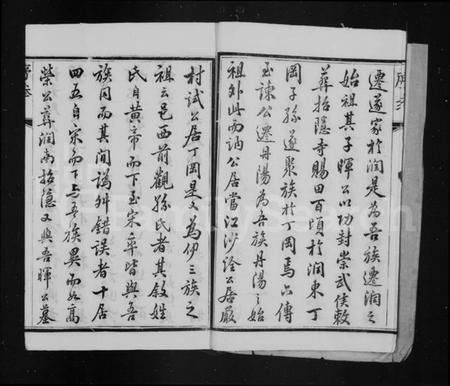 遷遂家於潤是為吾族遷潤之
始祖其子暉公以功封崇武侯敕
葬招隱寺賜田百頃於潤東丁
岡子孫遂聚族於丁岡焉六傳
至諫公遷丹湯為吾族丹湯之始
祖外此而訥公居當江沙淦公居嚴
村試公居丁岡是又為伊三族之
祖云邑西前觀孫氏者其敘姓
氏自黃帝而下至宋卒皆與吾
族同而其間訛舛錯誤者十居
四五自宋而下與吾族異而如高
榮公葬潤南招隱又與吾暉公墓